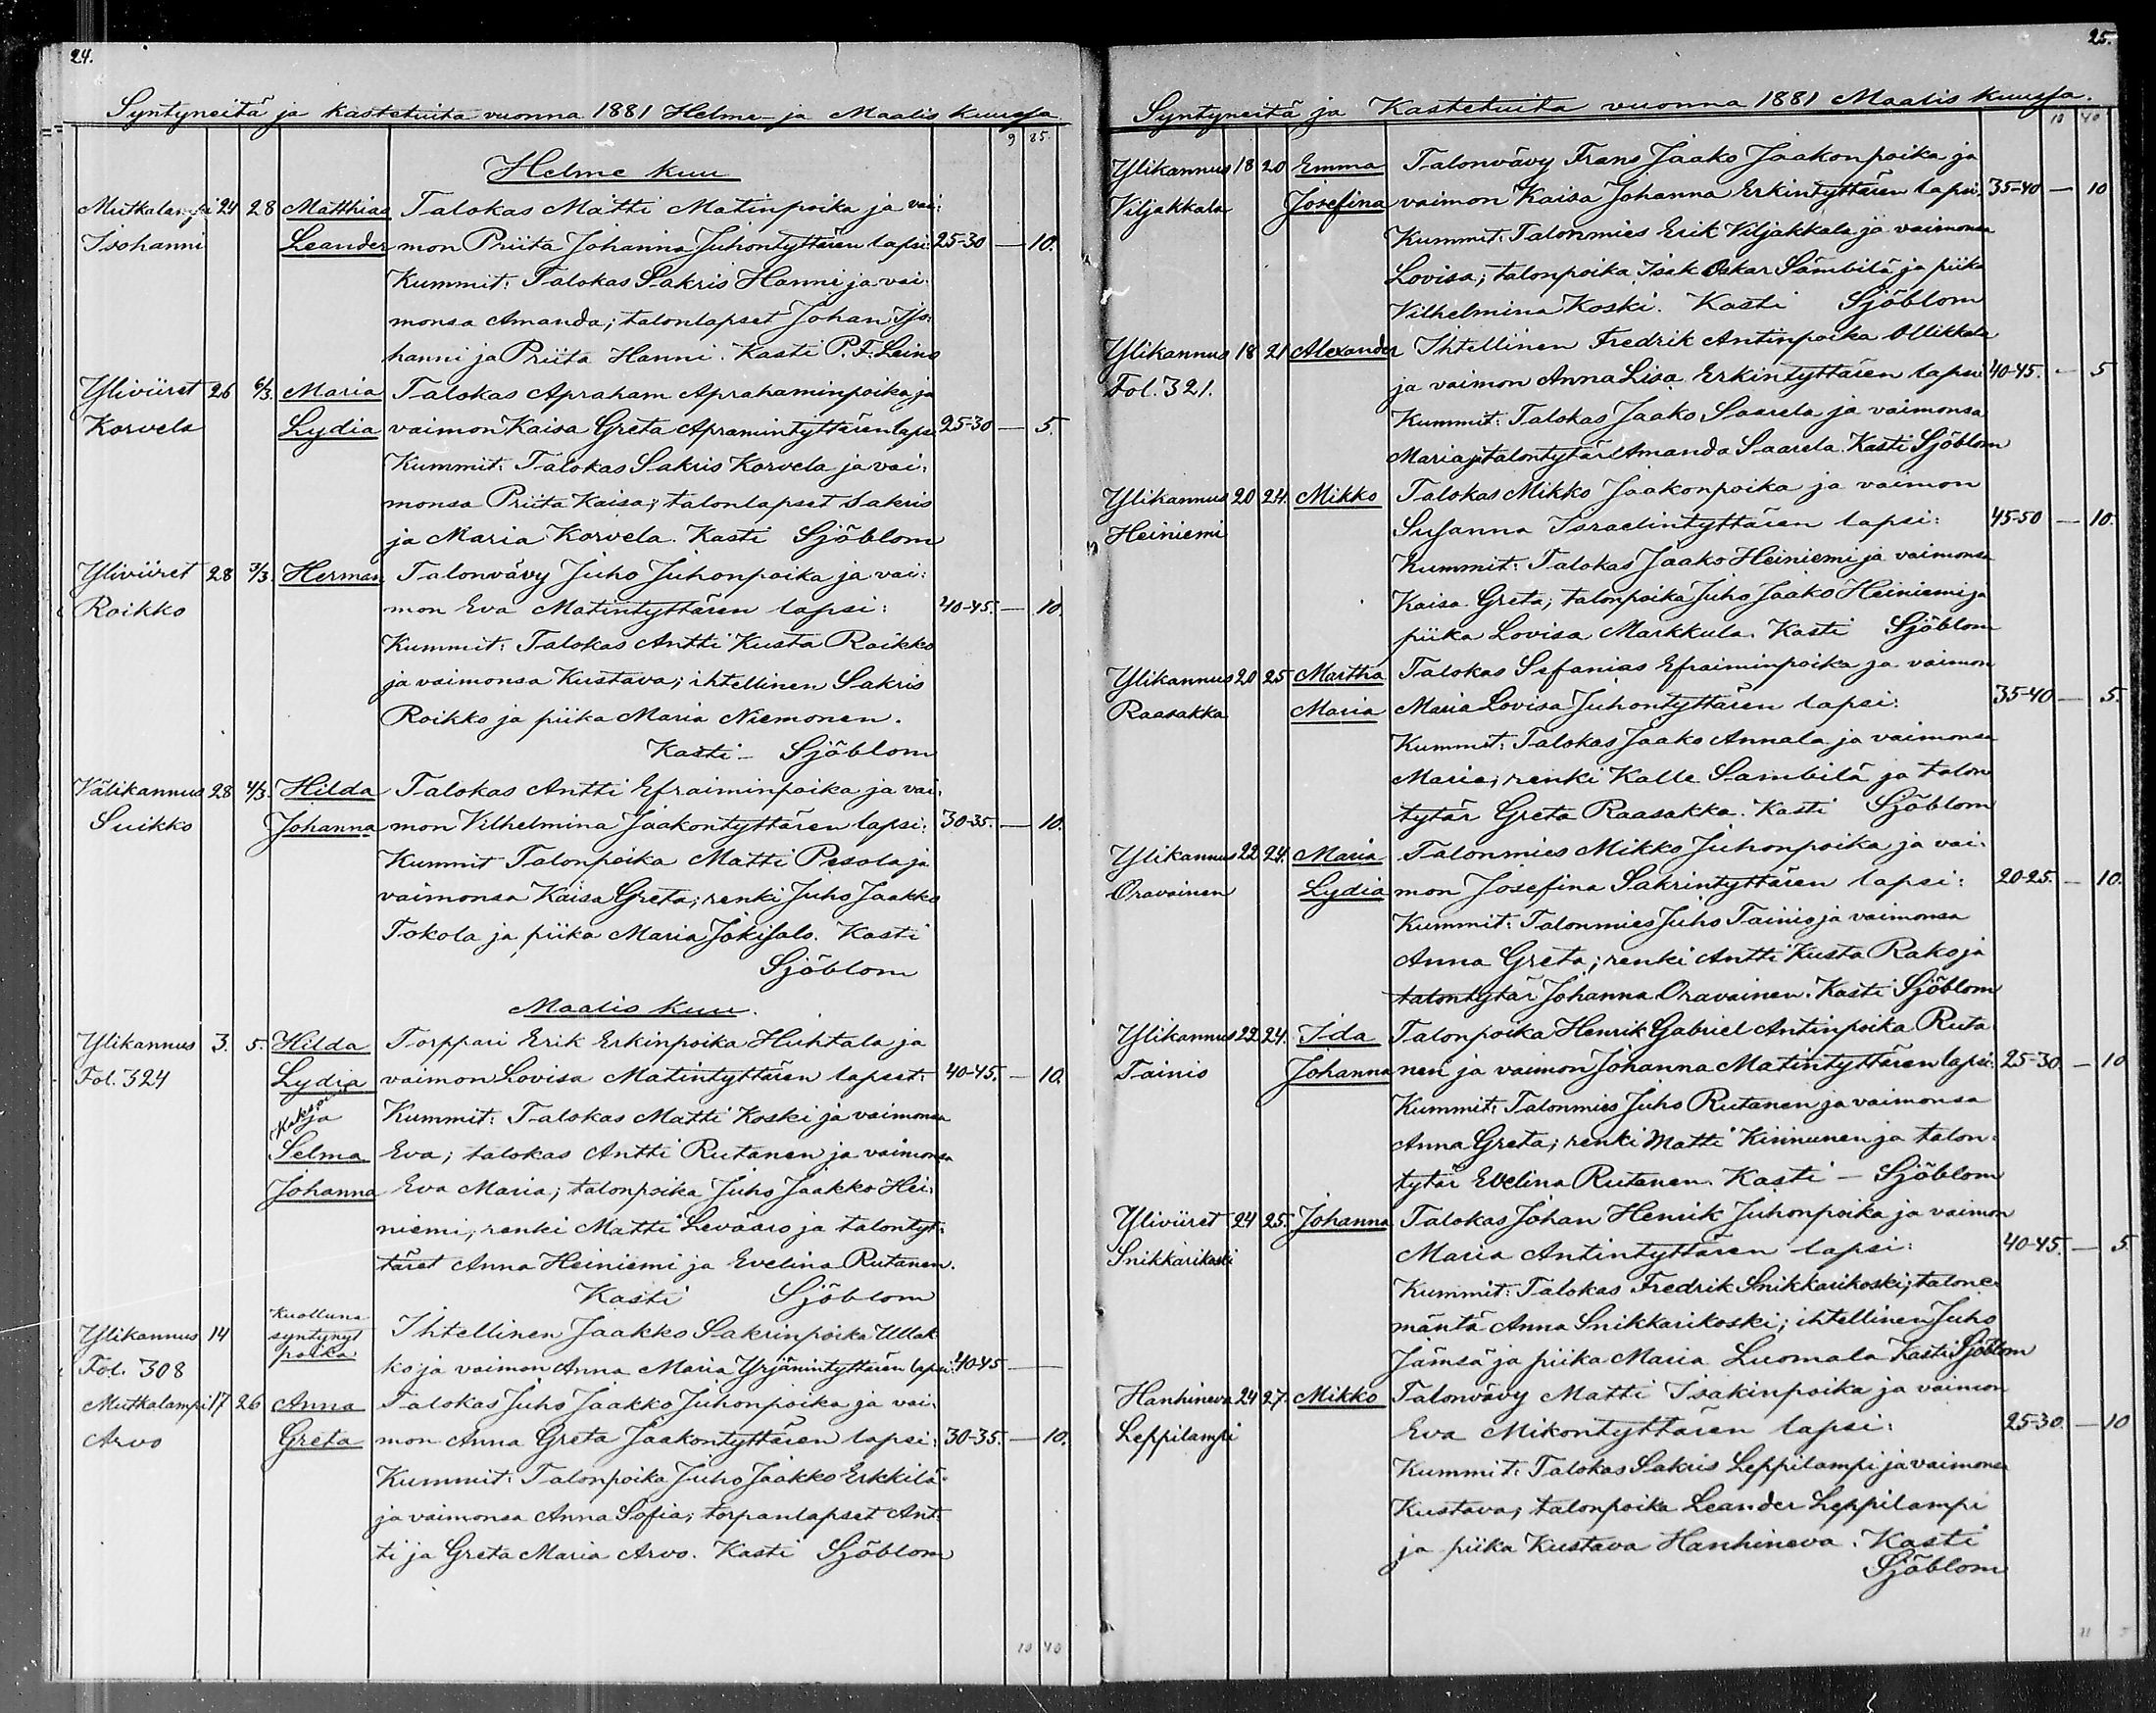 24.
Syntyneitä ja kastetuita vuonna 1881 Helme- ja Maalis kuussa
9 85.
Helme kuu
Mutkalampi 24 28 Matthias Talokas Matti Matinpoika ja vai-
Isohanni Leander mon Priita Johanna Juhontyttären lapsi: 25-30 — 10.
Kummit: Talokas Sakris Hanni ja vai-
monsa Amanda; talonlapset Johan Iso-
hanni ja Priita Hanni. Kasti P. F. Leino
Yliviiret 26 6/3. Maria Talokas Apraham Aprahaminpoika ja
Korvela Lydia vaimon Kaisa Greta Apramintyttären lapsi 25-30 — 5.
Kummit: Talokas Sakris Korvela ja vai-
monsa Priita Kaisa; talonlapset Sakris
ja Maria Korvela. Kasti Sjöblom
Yliviiret 28 3/3. Herman Talonvävy Juho Juhonpoika ja vai-
Roikko mon Eva Matintyttären lapsi: 40-45. — 10.
Kummit: Talokas Antti Kusta Roikko
ja vaimonsa Kustava; ihtellinen Sakris
Roikko ja piika Maria Niemonen.
Kasti - Sjöblom
Välikannus 28 4/3. Hilda Talokas Antti Efraiminpoika ja vai-
Suikko Johanna mon Vilhelmina Jaakontyttären lapsi: 30-35. — 10.
Kummit Talonpoika Matti Pesola ja
vaimonsa Kaisa Greta; renki Juho Jaakko
Tokola ja piika Maria Jokisalo. Kasti
Sjöblom
Maalis kuu.
Ylikannus 3. 5. Hilda Torppari Erik Erkinpoika Huhtala ja
Fol. 324 Lydia vaimon Lovisa Matintyttären lapset: 40-45. — 10.
ja Kummit: Talokas Matti Koski ja vaimonsa
Selma Eva; talokas Antti Rutanen ja vaimonsa
Johanna Eva Maria; talonpoika Juho Jaakko Hei-
niemi, renki Matti Levääro ja talontyt-
täret Anna Heiniemi ja Evelina Rutanen.
Kasti Sjöblom
Ylikannus 14 Kuolluna syntynyt poika Ihtellinen Jaakko Sakrinpoika Ullak-
Fol. 308 ko ja vaimon Anna Maria Yrjänintyttären lapsi: 40-45 —
Mutkalampi 17 26 Anna Talokas Juho Jaakko Juhonpoika ja vai-
Arvo Greta mon Anna Greta Jaakontyttären lapsi: 30-35. — 10.
Kummit: Talonpoika Juho Jaakko Erkkilä
ja vaimonsa Anna Sofia; torpanlapset Ant-
ti ja Greta Maria Arvo. Kasti Sjöblom
10 40
25.
Syntyneitä ja Kastetuita vuonna 1881 Maalis kuussa.
10 40
Ylikannus 18 20 Emma Talonvävy Frans Jaako Jaakonpoika ja
Viljakkala Josefina vaimon Kaisa Johanna Erkintyttären lapsi, 35-40 — 10
Kummit: Talonmies Erik Viljakkala ja vaimonsa
Lovisa; talonpoika Isak Oskar Sämbilä ja piika
Vilhelmina Koski. Kasti Sjöblom
Ylikannus 18 21 Alexander Ihtellinen Fredrik Antinpoika Ollikkala
Fol. 321. ja vaimon Anna Lisa Erkintyttären lapsi 40-45. — 5
Kummit: Talokas Jaako Saarela ja vaimonsa
Maria ja talontytär Amanda Saarela. Kasti Sjöblom
Ylikannus 20 24. Mikko Talokas Mikko Jaakonpoika ja vaimon
Heiniemi Susanna Israelintyttären lapsi: 45-50 — 10.
Kummit: Talokas Jaako Heiniemi ja vaimonsa
Kaisa Greta; talonpoika Juho Jaako Heiniemi ja
piika Lovisa Markkula. Kasti Sjöblom
Ylikannus 20 25 Martha Talokas Sefanias Efraiminpoika ja vaimon
Raasakka Maria Maria Lovisa Juhontyttären lapsi: 35-40 — 5.
Kummit: Talokas Jaako Annala ja vaimonsa
Maria; renki Kalle Sambilä ja talon
tytär Greta Raasakka. Kasti Sjöblom
Ylikannus 22 24. Maria Talonmies Mikko Juhonpoika ja vai-
Oravainen Lydia mon Josefina Sakrintyttären lapsi: 20-25. — 10.
Kummit: Talonmies Juho Tainio ja vaimonsa
Anna Greta; renki Antti Kusta Rako ja
talontytär Johanna Oravainen. Kasti Sjöblom
Ylikannus 22 24. Ida Talonpoika Henrik Gabriel Antinpoika Ruta-
Tainio Johanna nen ja vaimon Johanna Matintyttären lapsi: 25-30 — 10
Kummit: Talonmies Juho Rutanen ja vaimonsa
Anna Greta; renki Matti Kinnunen ja talon-
tytär Evelina Rutanen. Kasti - Sjöblom
Yliviiret 24 25. Johanna Talokas Johan Henrik Juhonpoika ja vaimon
Snikkarikoski Maria Antintyttären lapsi: 40-45. — 5.
Kummit: Talokas Fredrik Snikkarikoski; talone-
mäntä Anna Snikkarikoski; ihtellinen Juho
Jämsä ja piika Maria Luomala Kasti Sjöblom
Hanhineva 24 27. Mikko Talonvävy Matti Isakinpoika ja vaimon
Leppilampi Eva Mikontyttären lapsi: 25-30. — 10
Kummit: Talokas Sakris Leppilampi ja vaimonsa
Kustava; talonpoika Leander Leppilampi
ja piika Kustava Hanhineva. Kasti
Sjöblom
11 5